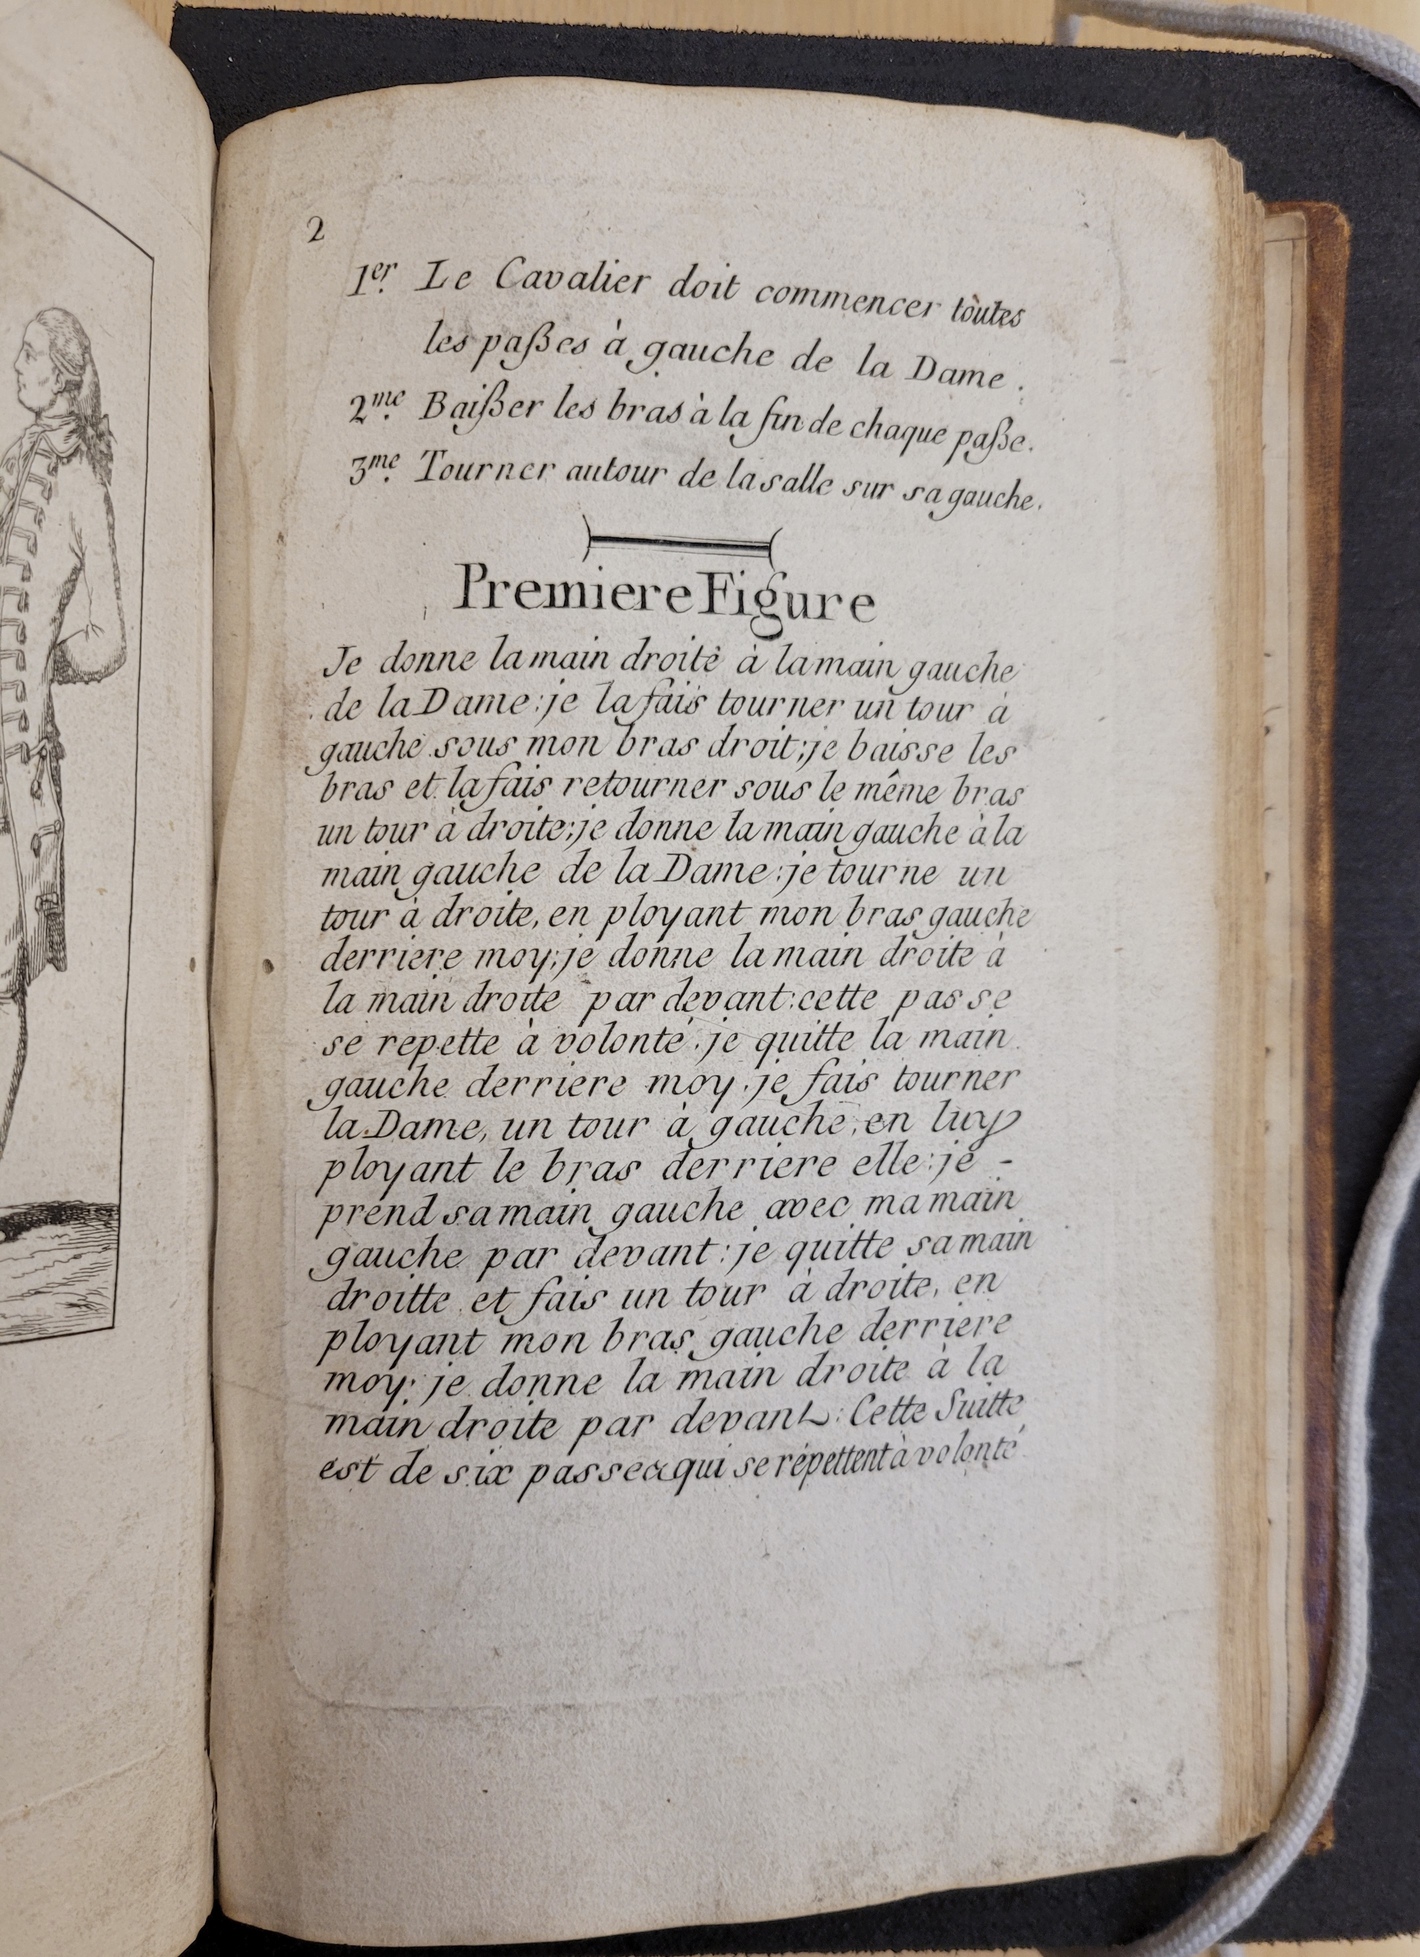 2
1er. Le Cavalier doit commencer toutes
les paßes à gauche de la Dame.
2me. Baißer les bras à la fin de chaque paße.
3me. Tourner autour de la salle sur sa gauche.
Premiere Figure
Je donne la main droite à la main gauche
de la Dame: je la fais tourner un tour à
gauche sous mon bras droit; je baisse les
bras et la fais retourner sous le même bras
un tour à droite; je donne la main gauche à la
main gauche de la Dame: je tourne un
tour à droite, en ployant mon bras gauche
derriere moy; je donne la main droite à
la main droite par devant: cette passe
se repette à volonté: je quitte la main
gauche derriere moy, je fais tourner
la Dame, un tour à gauche, en luy
ployant le bras derriere elle: je -
prend sa main gauche avec ma main
gauche par devant: je quitte sa main
droitte et fais un tour à droite, en
ployant mon bras gauche derriere
moy: je donne la main droite à la
main droite par devant: Cette Suitte
est de six passes qui se répettent à volonté